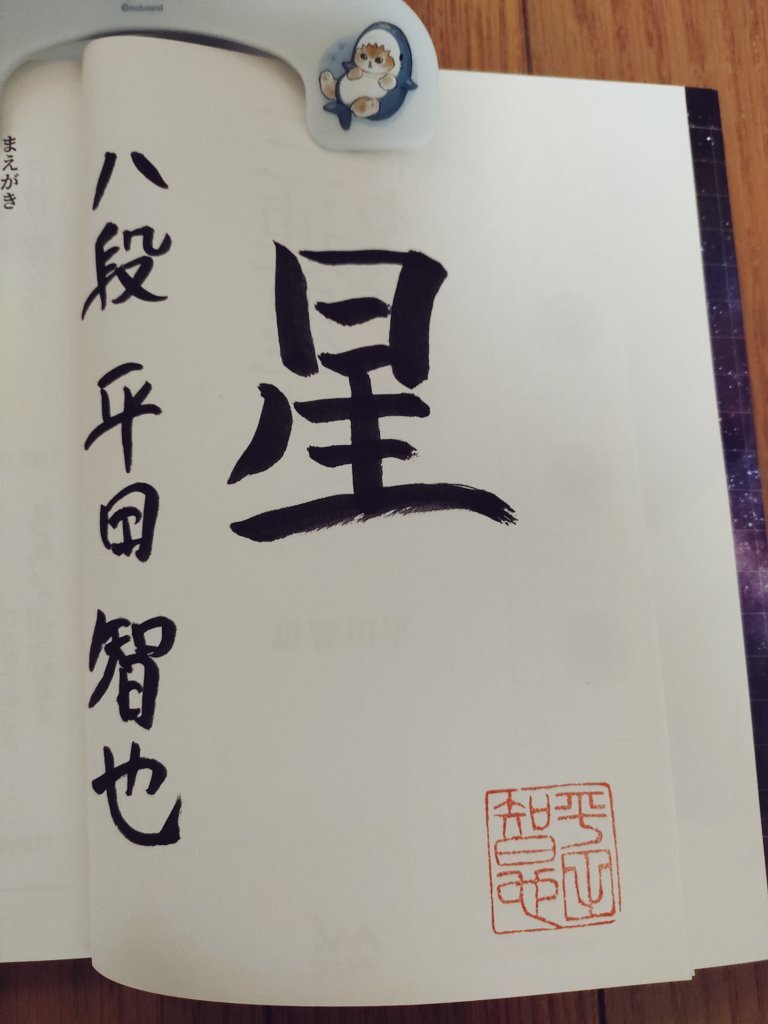 ©mofusand
星
八段 平田 智也
平田智也
まえがき